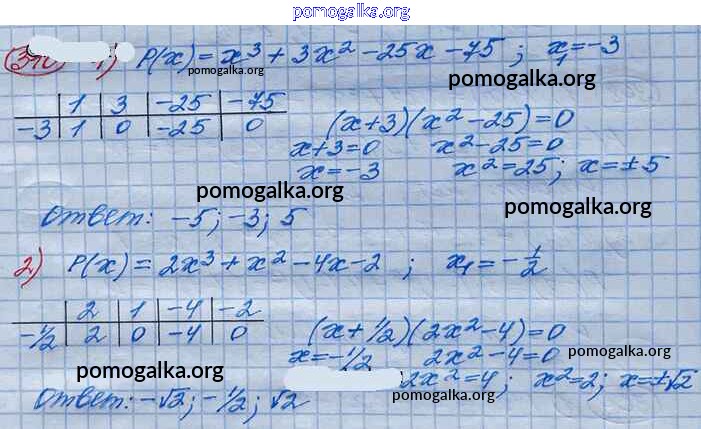 pomogalka.org
1) P(x) = x³ + 3x² - 25x - 75 ; x₁ = -3
pomogalka.org
pomogalka.org
1 3 -25 -75
-3 1 0 -25 0
(x+3)(x² - 25) = 0
x+3=0 x² - 25 = 0
x = -3 x² = 25 ; x = ±5
pomogalka.org
pomogalka.org
Ответ: -5 ; -3 ; 5
2) P(x) = 2x³ + x² - 4x - 2 ; x₁ = -1/2
2 1 -4 -2
-1/2 2 0 -4 0
(x + 1/2)(2x² - 4) = 0
x = -1/2 2x² - 4 = 0
pomogalka.org
pomogalka.org
2x² = 4 ; x² = 2 ; x = ±√2
pomogalka.org
Ответ: -√2 ; -1/2 ; √2